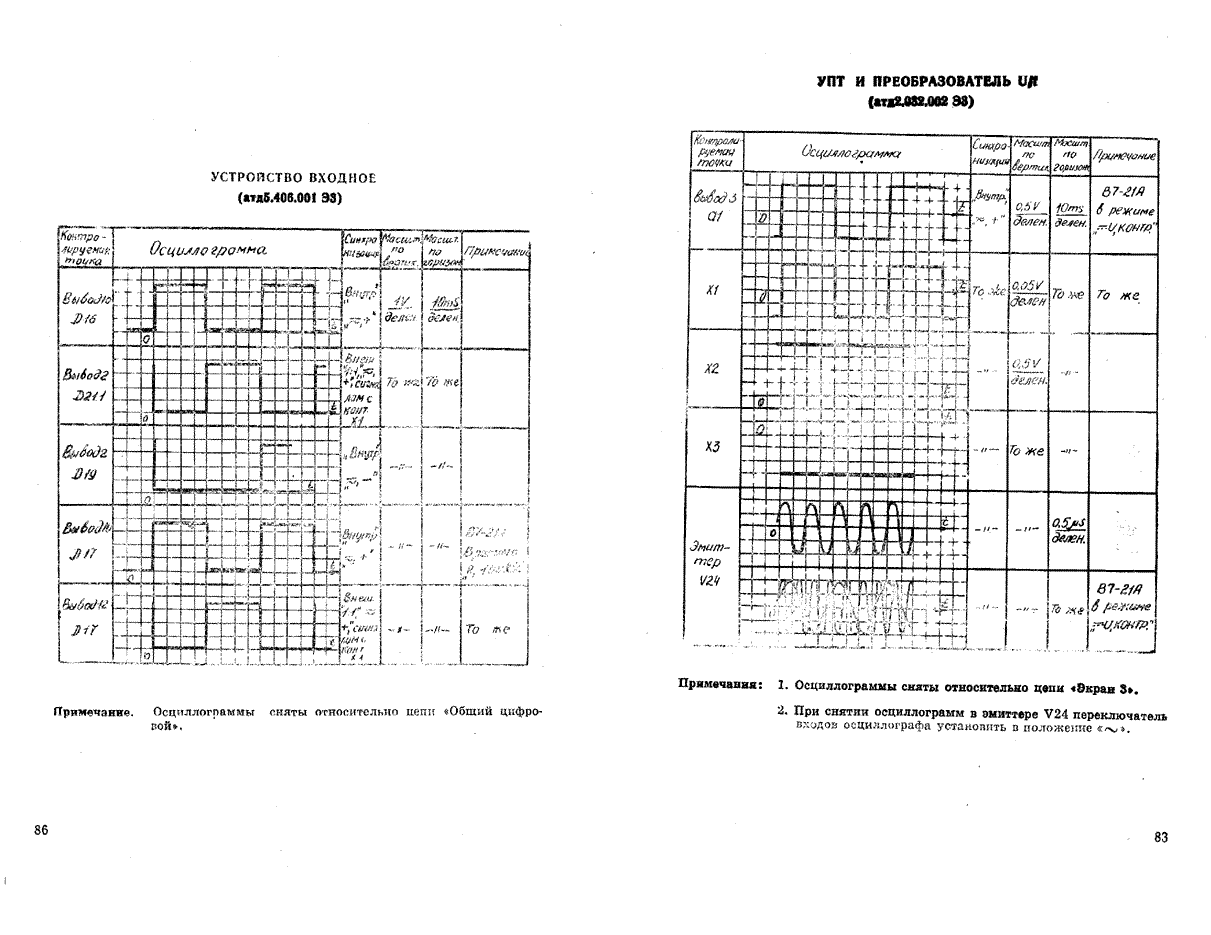 УСТРОЙСТВО ВХОДНОЕ
(атд5.406.001 ЭЗ)
Контро-
лируемая
точка
Осциллограмма
Синхро
низация
Масшт.
по
вертик.
Масшт.
по
горизон
Примечание
Вывод10
D16
0
t
„Внутр"
„≂,+"
1V
делен.
10mS
делен
Вывод2
D211
0
t
Внеш
1:1",≂,
+",сигна
лом с
конт.
X1
То же
То же
Вывод2
D19
0
t
„Внутр"
„≂, –"
–"–
–"–
Вывод10
D17
0
t
„Внутр"
„≂, +"
–"–
–"–
В7-21А
Вывод12
D17
0
t
Внеш.
1:1" ≂
+",сигна
лом с
конт
X1
–"–
–"–
То же
Примечание. Осциллограммы сняты относительно цепи «Общий цифро-
вой».
86
УПТ И ПРЕОБРАЗОВАТЕЛЬ U/f
(атд2.032.002 ЭЗ)
Контроли-
руемая
точки
Осциллограмма
Синхро
низация
Масшт
по
вертик.
Масшт
по
горизон
Примечание
Вывод 3
Q1
0
t
„Внутр",
„≂, +"
0,5V
делен.
10ms
делен.
В7-21А
в режиме
„⎓U,КОНТР."
X1
0
t
То же
0,05V
делен
То же
То же
X2
0
t
–"–
0,5V
делен.
–"–
X3
0
t
–"–
То же
–"–
Эмит-
тер
V24
0
t
–"–
–"–
0,5μs
делен.
t
–"–
–"–
То же
В7-21А
в режиме
„⎓U,КОНТР."
Примечания: 1. Осциллограммы сняты относительно цепи «Экран 3».
2. При снятии осциллограмм в эмиттере V24 переключатель
входов осциллографа установить в положение «∼».
83